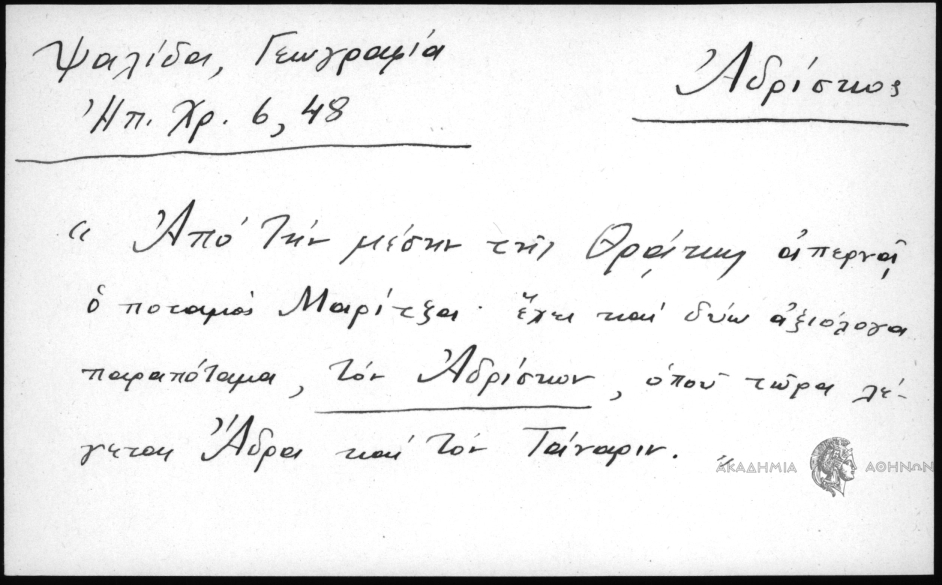 Ψαλίδα, Γεωγραφία
Ἠπ. Χρ. 6, 48
Ἀδρίσκος
« Ἀπό τήν μέσην τῆς Θρᾴκης ἀπερνᾷ
ὁ ποταμός Μαρίτζα· ἔχει καί δύω ἀξιόλογα
παραπόταμα, τόν Ἀδρίσκον, ὁποῦ τῶρα λέ-
γεται Ἄδρα καί τόν Ταίναριν. »
ΑΚΑΔΗΜΙΑ ΑΘΗΝΩΝ